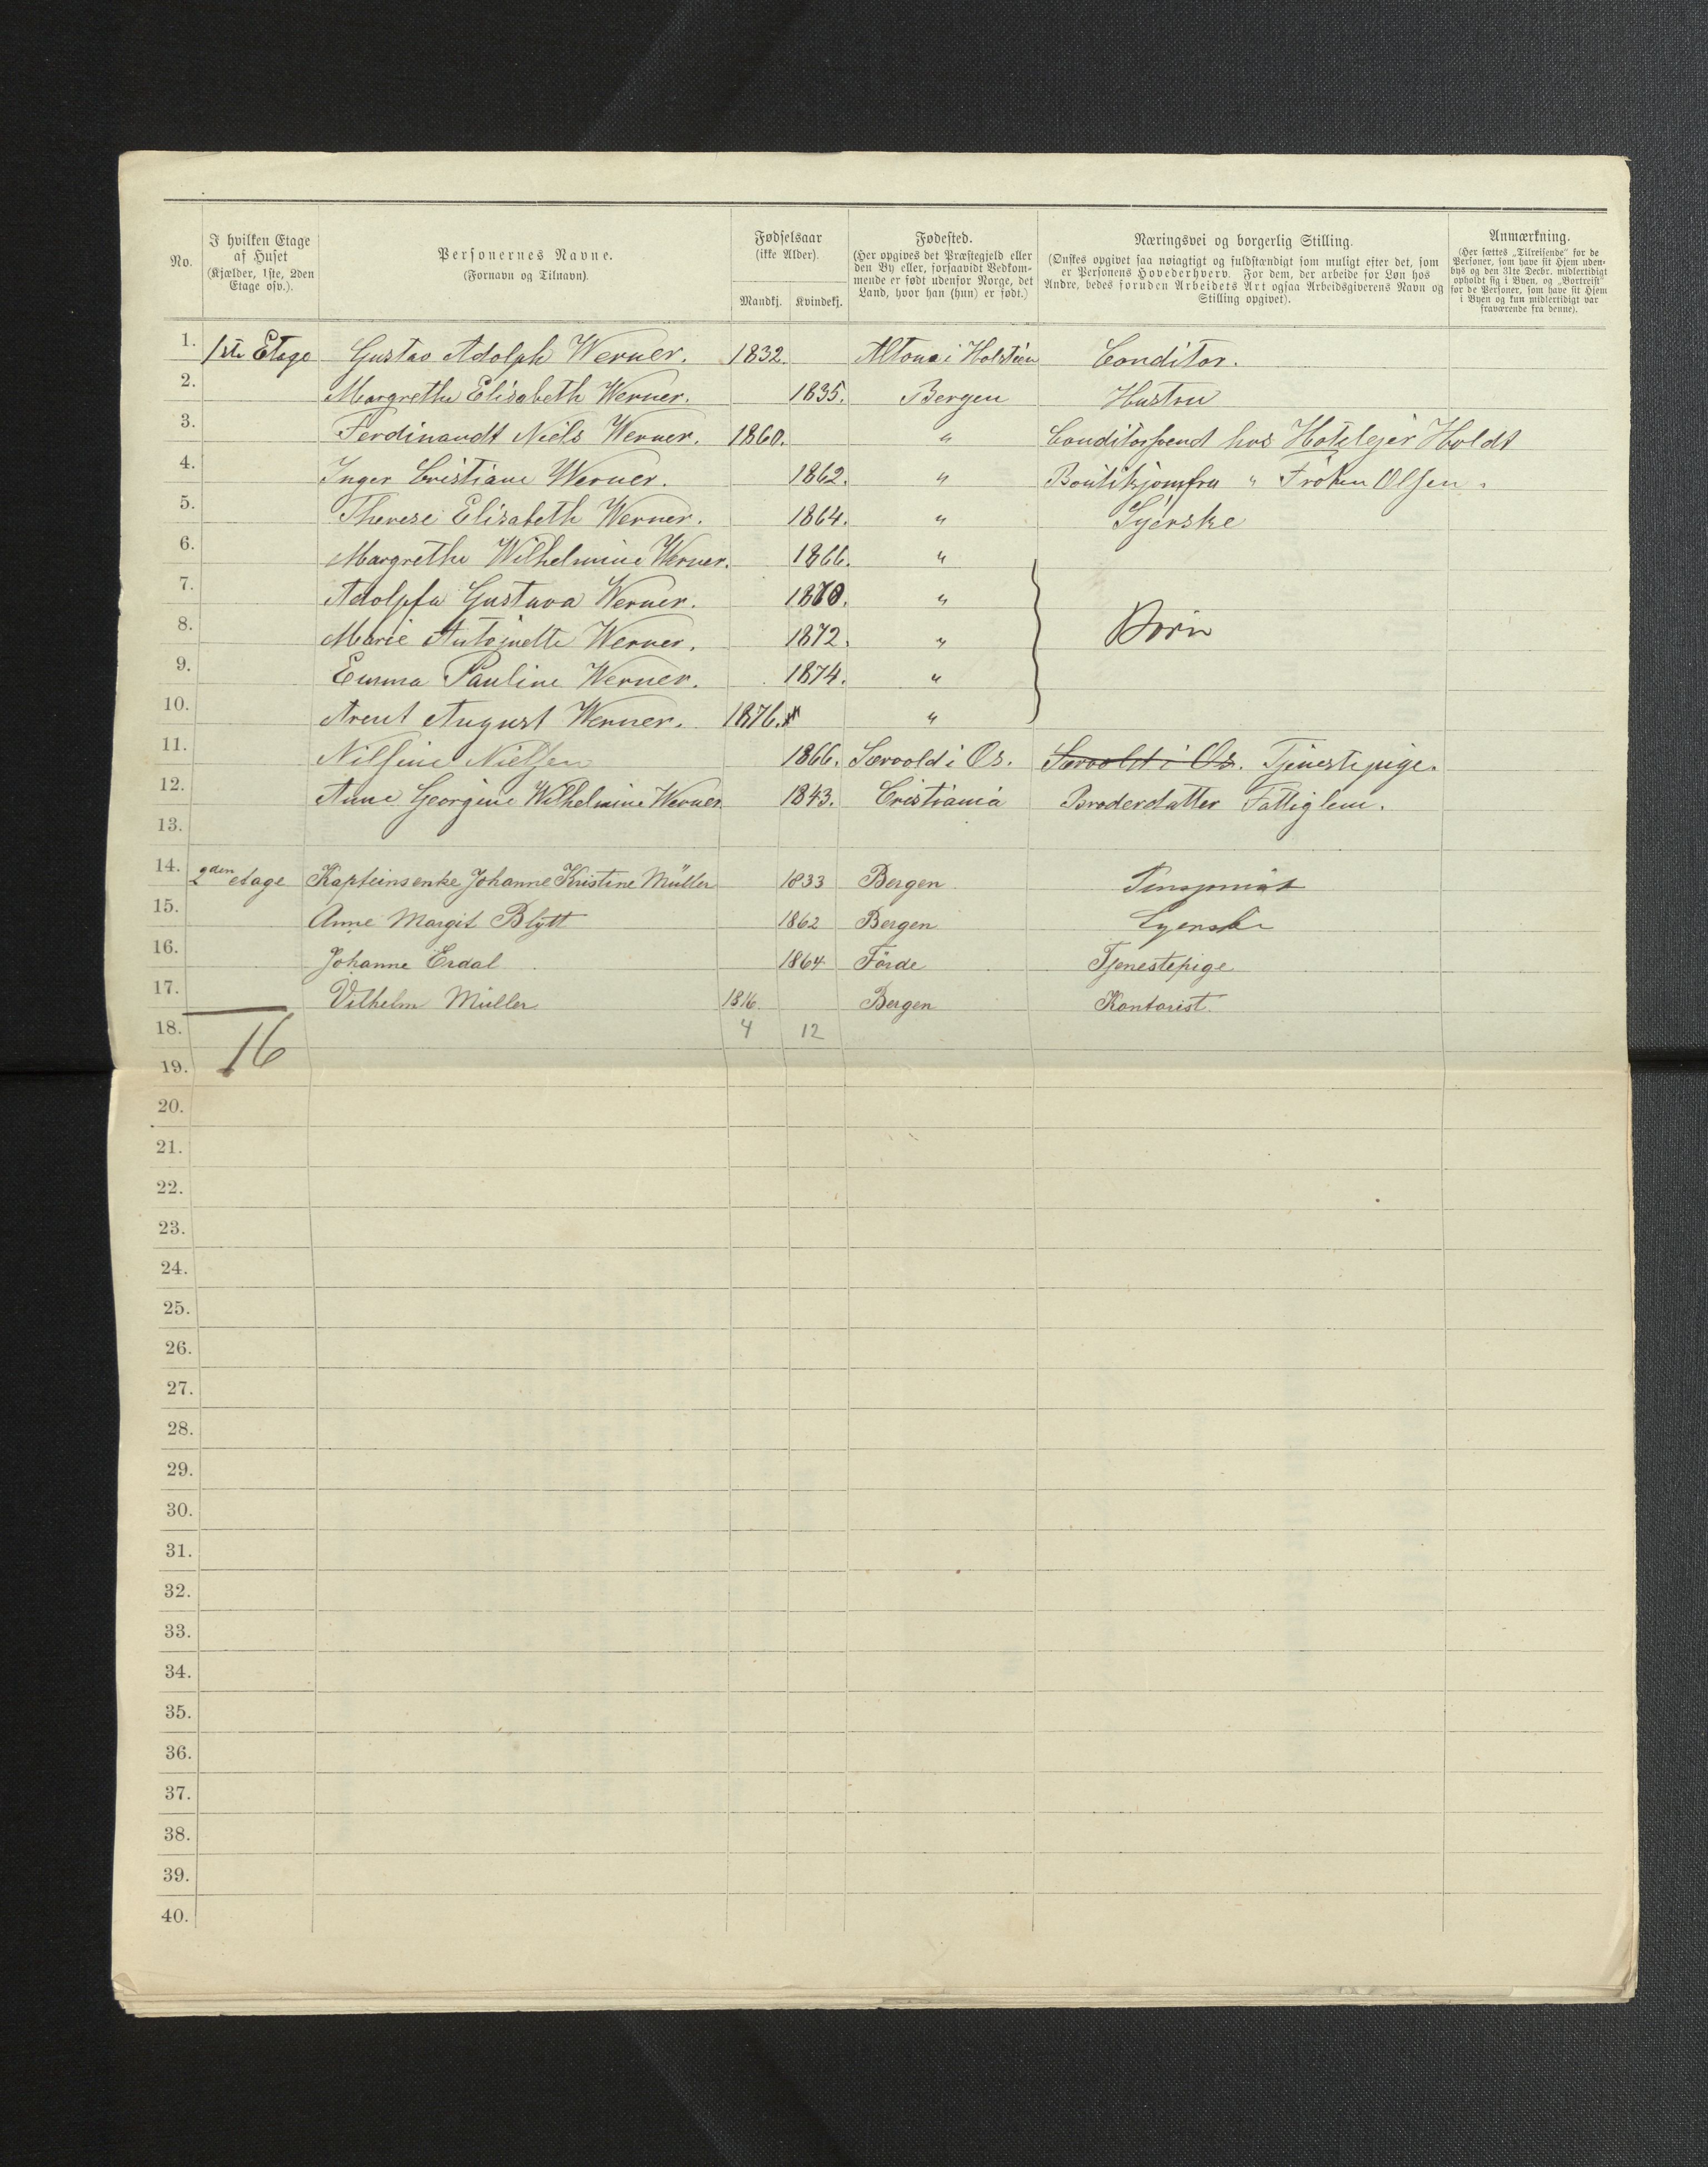 No.
I hvilken Etage
af Huset
(Kjælder, 1ste, 2den
Etage osv.).
Personernes Navne.
(Fornavn og Tilnavn).
Fødselsaar
(ikke Alder).
Mandkj. Kvindekj.
Fødested.
(Her opgives det Præstegjeld eller
den By eller, forsaavidt Vedkom-
mende er født udenfor Norge, det
Land, hvor han (hun) er født.)
Næringsvei og borgerlig Stilling.
(Ønskes opgivet saa nøiagtigt og fuldstændigt som muligt efter det, som
er Personens Hovederhverv. For dem, der arbeide for Løn hos
Andre, bedes foruden Arbeidets Art ogsaa Arbeidsgiverens Navn og
Stilling opgivet).
Anmærkning.
(Her sættes „Tilreisende" for de
Personer, som have sit Hjem uden-
bys og den 31te Decbr. midlertidigt
opholdt sig i Byen, og „Bortreist"
for de Personer, som have sit Hjem
i Byen og kun midlertidigt var
fraværende fra denne).
1. 1ste Etage Gustav Adolph Werner. 1832. Altona i Holstein Conditor.
2. Margrethe Elisabeth Werner. 1835. Bergen Hustru
3. Ferdinandt Niels Werner. 1860. " Conditorsvend hos Hotelejer Holdt
4. Inger Cristiane Werner. 1862. " Boutikjomfru " Frøken Olsen.
5. Therese Elisabeth Werner. 1864. " Syerske
6. Margrethe Wilhelmine Werner. 1866. "
7. Adolpfa Gustava Werner. 1870. "
8. Marie Antoinette Werner. 1872. " Børn
9. Emma Pauline Werner. 1874. "
10. Arent August Werner. 1876. "
11. Nilsine Nielsen 1866. Særvold i Os. Særvold i Os. Tjenestepige.
12. Anne Georgine Wilhelmine Werner 1843. Cristiania Broderdatter Fattiglem.
13.
14. 2den etage Kapteinsenke Johanne Kristine Müller 1833 Bergen
15. Anne Margit Blytt 1862 Bergen Syerske
16. Johanne Erdal 1864 Førde Tjenestepige
17. Vilhelm Müller 1816. Bergen Kontorist.
18. 16 4 12
19.
20.
21.
22.
23.
24.
25.
26.
27.
28.
29.
30.
31.
32.
33.
34.
35.
36.
37.
38.
39.
40.